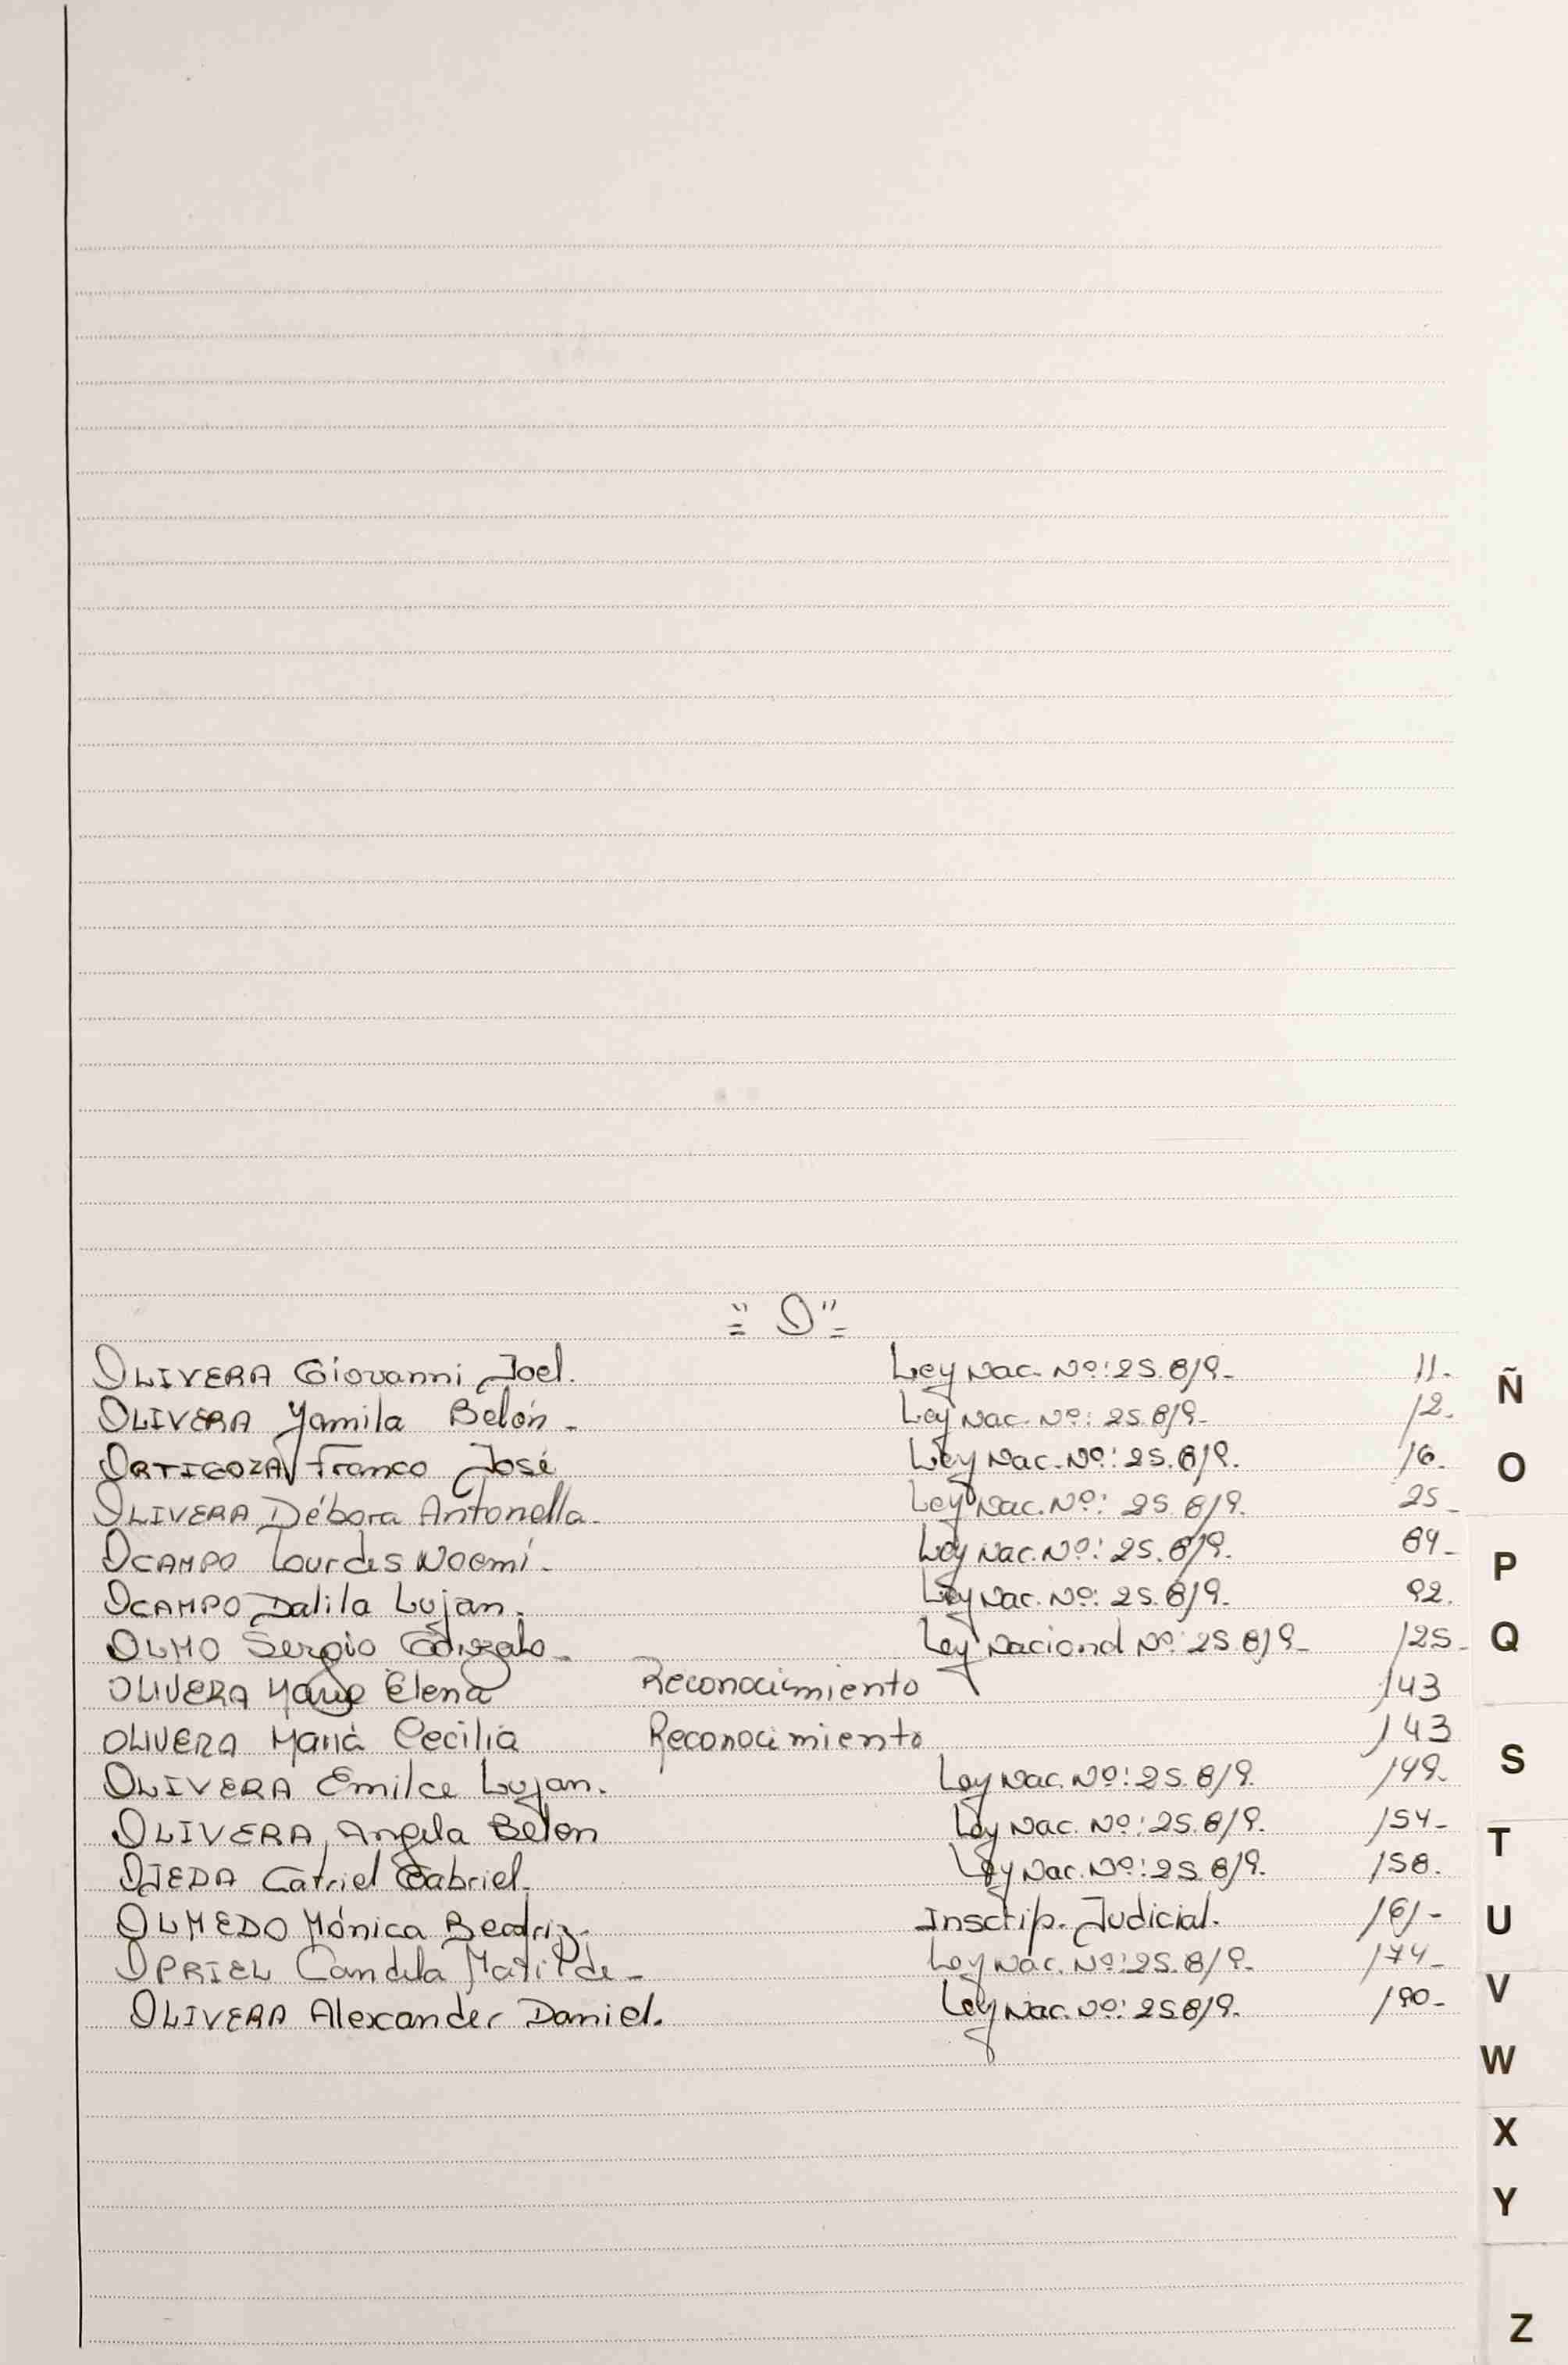 "O"
OLIVERA Giovanni Joel. Ley Nac. Nº: 25.819- 11.
OLIVERA Yamila Belén - Ley Nac. Nº: 25.819- 12.
ORTIGOZA Franco José Ley Nac. Nº: 25.819. 16.
OLIVERA Débora Antonella. Ley Nac. Nº: 25.819. 25-
OCAMPO Lourdes Noemí. Ley Nac. Nº: 25.819. 84-
OCAMPO Dalila Lujan. Ley Nac. Nº: 25.819. 92.
OLMO Sergio Gonzalo - Ley Nacional Nº: 25.819- 125-
OLIVERA Elena Reconocimiento 143
OLIVERA María Cecilia Reconocimiento 143
OLIVERA Emilce Lujan. Ley Nac. Nº: 25.819. 149.
OLIVERA, Angela Belen Ley Nac. Nº: 25.819. 154-
OJEDA Catriel Gabriel. Ley Nac. Nº: 25.819. 158.
OLMEDO Mónica Beatriz. Inscrip. Judicial. 161-
OPRIEL Candela Matilde - Ley Nac. Nº: 25.819. 174-
OLIVERA Alexander Daniel. Ley Nac. Nº: 25819. 190-
Ñ
O
P
Q
S
T
U
V
W
X
Y
Z